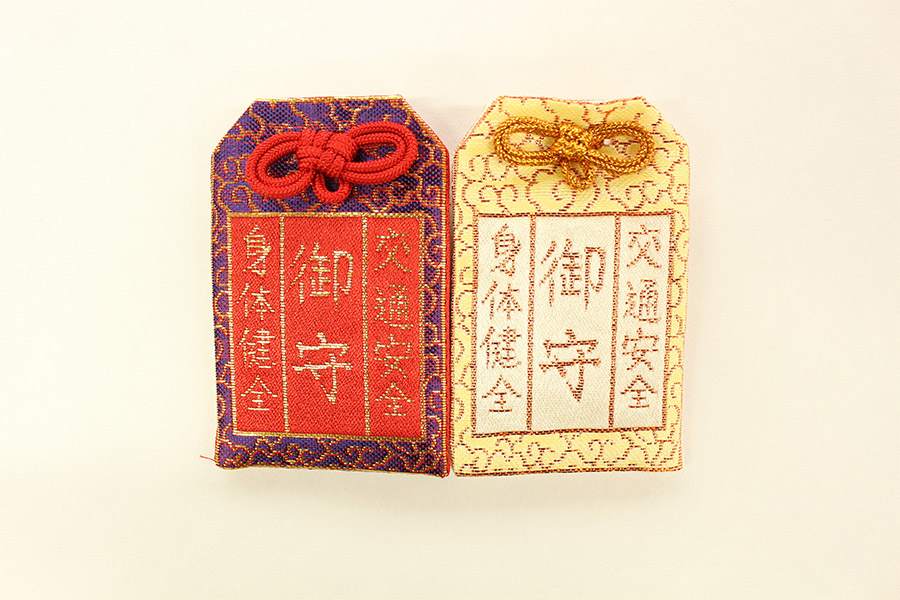 交通安全
御守
身体健全
交通安全
御守
身体健全